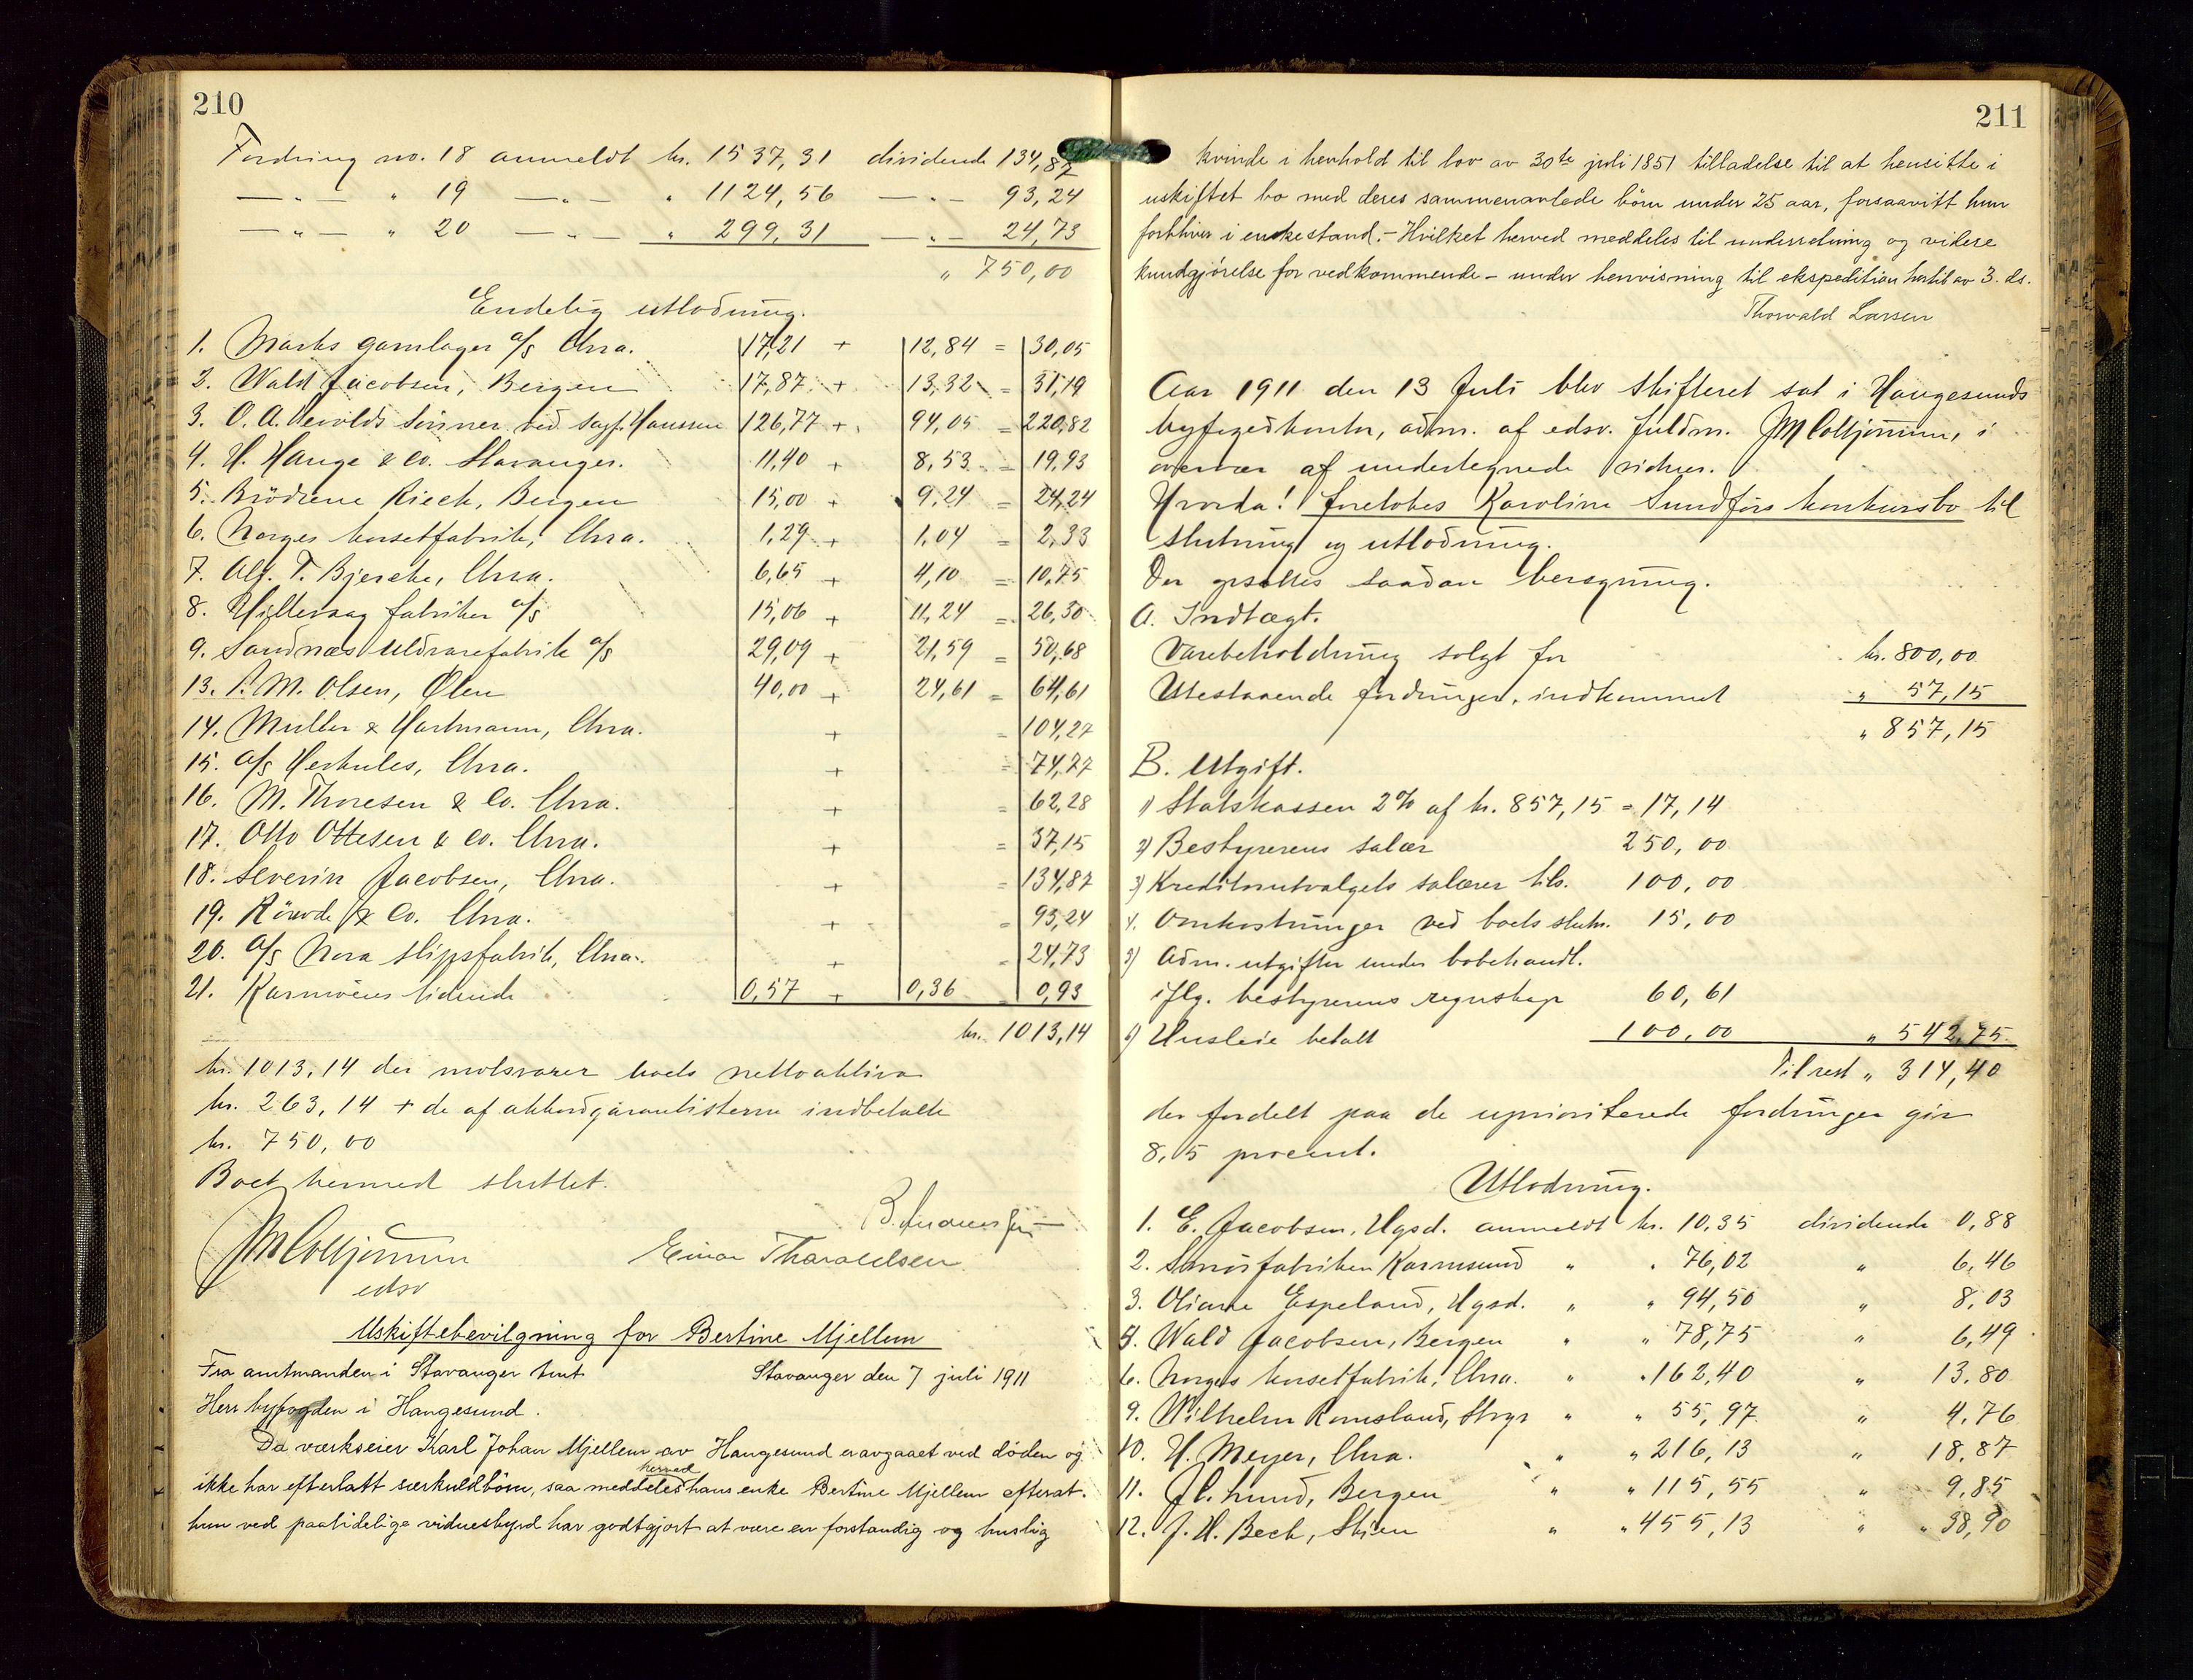 210
Fordring no. 18 anmeldt kr. 1537,31 dividende 134,87
— " — " 19 — " — " 1124,56 — " — 93,24
— " — " 20 — " — " 299,31 — " — 24,73
" 750,00
Endelig utlodning.
1. Marks garnlager a/s Chra. 17,21 + 12,84 = 30,05
2. Wald Jacobsen, Bergen 17,87 + 13,32 = 31,19
3. O. A. Devolds sönner ved sagf. Hanssen 126,77 + 94,05 = 220,82
4. H. Hauge & Co. Stavanger. 11,40 + 8,53 = 19,93
5. Brödrene Rieck, Bergen 15,00 + 9,24 = 24,24
6. Norges korsetfabrik, Chra. 1,29 + 1,04 = 2,33
7. Alf. T. Bjercke, Chra. 6,65 + 4,10 = 10,75
8. Hillevaag fabriker a/s 15,06 + 11,24 = 26,30
9. Sandnæs uldvarefabrik a/s 29,09 + 21,59 = 50,68
13. P. M. Olsen, Ølen 40,00 + 24,61 = 64,61
14. Muller & Hartmann, Chra. + = 104,27
15. a/s Herkules, Chra. + = 74,27
16. M. Thoresen & Co. Chra. + = 62,28
17. Otto Ottesen & Co. Chra. + = 37,15
18. Severin Jacobsen, Chra. + = 134,87
19. & Co. Chra. + = 93,24
20. a/s Nora slipsfabrik, Chra. + = 24,73
21. Karmöens tidende 0,57 + 0,36 0,93
kr. 1013,14
kr. 1013,14 der motsvarer boets nettoaktiva
kr. 263,14 + de af akkordgarantisterne indbetalte
kr. 750,00
Boet hermed sluttet.
Einar Tharaldsen
edsv
Uskiftebevilgning for Bertine Mjellem
Fra amtmanden i Stavanger amt Stavanger den 7 juli 1911
Herr byfogden i Haugesund.
Da værkseier Karl Johan Mjellem av Haugesund er avgaaet ved døden og
ikke har efterlatt særkuldbörn, saa meddeles herved hans enke Bertine Mjellem efterat
hun ved paalidelige vidnesbyrd har godtgjort at være en forstandig og huslig
211
kvinde i henhold til lov av 30te juli 1851 tilladelse til at hensitte i
uskiftet bo med deres sammenavlede börn under 25 aar, forsaavitt hun
forbliver i enkestand. - Hvilket herved meddeles til underretning og videre
kundgjörelse for vedkommende - under henvisning til ekspedition hertil av 3. ds.
Thorvald Larsen
Aar 1911 den 13 Juli blev skifteret sat i Haugesunds
byfogedkontor, adm. af edsv. fuldm. i
overvær af undertegnede vidner.
Hvorda! foretokes Karoline Sundførs konkursbo til
slutning og utlodning.
Der opsattes saadan beregning.
A. Indtægt.
Varebeholdning solgt for kr. 800,00
Utestaaende fordringer, indkommet " 57,15
" 857,15
B. Utgift.
1) Statskassen 2% af kr. 857,15 = 17,14
2) Bestyrerens salær 250,00
3) Kreditorutvalgets salærer tils. 100,00
4. Omkostninger ved boets slutn. 15,00
5) Adm. utgifter under bobehandl.
iflg. bestyrerens regnskap 60,61
6) Husleie betalt 100,00 " 542,75
Til rest " 314,40
der fordelt paa de uprioriterede fordringer gir
8,5 procent.
Utlodning.
1. E. Jacobsen, Hgsd. anmeldt kr. 10,35 dividende 0,88
2. Smörfabriken Karmsund " " 76,02 " 6,46
3. Oliane Espeland, Hgsd. " " 94,50 " 8,03
4. Wald Jacobsen, Bergen " " 78,75 " 6,49
6. Norges korsetfabrik, Chra. " " 162,40 " 13,80
9. Wilhelm Romsland, Stvgr " " 55,97 " 4,76
10. H. Meyer, Chra. " " 216,13 " 18,87
11. J. C. Lund, Bergen " " 115,55 " 9,85
12. J. H. Beck, Skien " " 455,13 " " 38,90